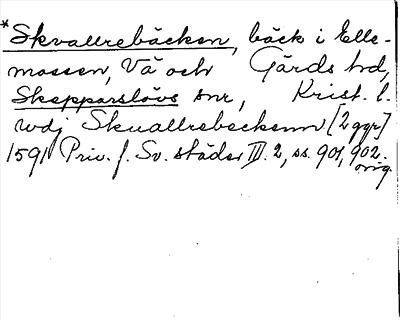 *Skvallrebäcken, bäck i Elle-
mossen, Vä och Gärds hd,
Skepparslövs snr, Krist. l.
wdj Skuallrebeckenn [2 ggr]
1591 Priv. f. Sv. städer III. 2, ss. 901, 902.
orig.